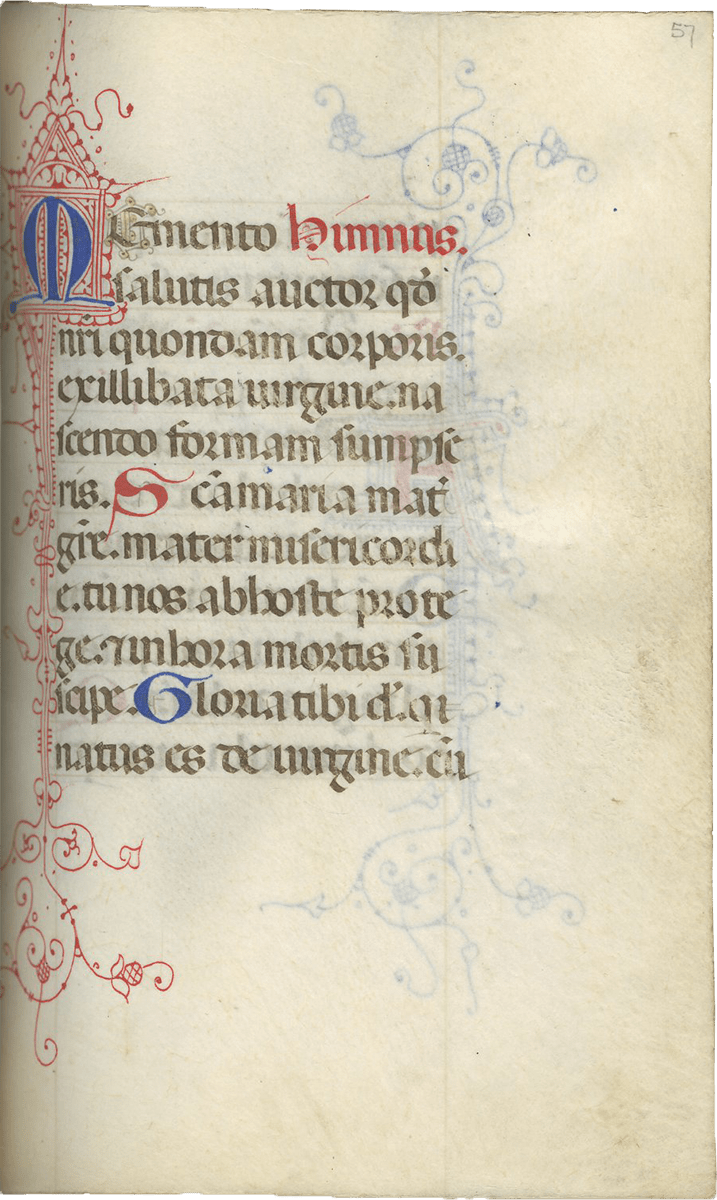 57
Memento himnus.
salutis auctor qđ
nr̄i quondam corporis.
exillibata uirgine. na
scendo formam sumpse
ris. Sc̄a maria mat̄
gr̄e. mater misericordi
e. tu nos ab hoste prote
ge. ⁊ in hora mortis su
scipe. Gloria tibi dn̄e. qui
natus es de uirgine. cū